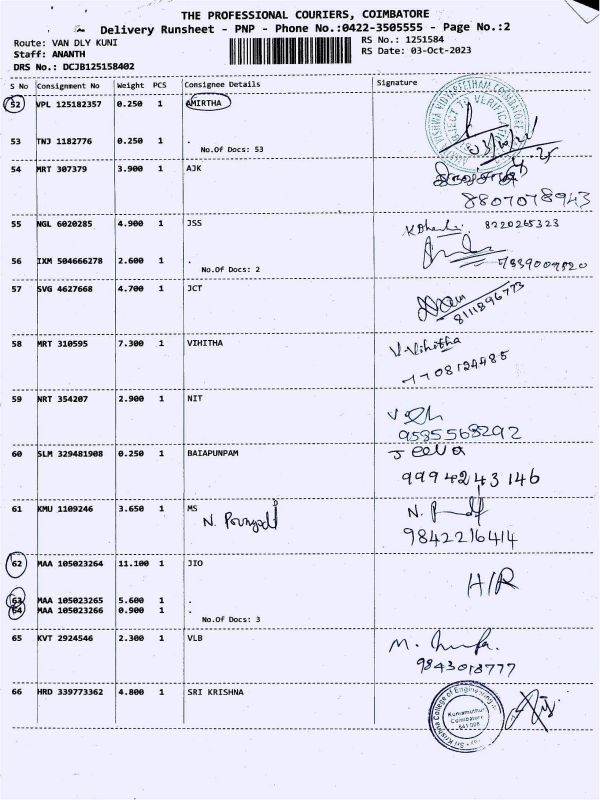 THE PROFESSIONAL COURIERS, COIMBATORE
Delivery Runsheet - PNP - Phone No.:0422-3505555 - Page No.:2
Route: VAN DLY KUNI
RS No.: 1251584
Staff: ANANTH
RS Date: 03-Oct-2023
DRS No.: DCJB125158402
S No Consignment No Weight PCS Consignee Details Signature
52 VPL 125182357 0.250 1 AMIRTHA
53 TNJ 1182776 0.250 1 .
No.Of Docs: 53
54 MRT 307379 3.900 1 AJK
8807078943
55 NGL 6020285 4.900 1 JSS
8220265323
56 IXM 504666278 2.600 1 .
No.Of Docs: 2
57 SVG 4627668 4.700 1 JCT
8111896773
58 MRT 310595 7.300 1 VIHITHA V.Vihitha
59 NRT 354207 2.900 1 NIT
9585568292
60 SLM 329481908 0.250 1 BAIAPUNPAM Jeeva
9994243146
61 KMU 1109246 3.650 1 MS
9842216414
62 MAA 105023264 11.100 1 JIO H/R
63 MAA 105023265 5.600 1 .
64 MAA 105023266 0.900 1 .
No.Of Docs: 3
65 KVT 2924546 2.300 1 VLB
9843018777
66 HRD 339773362 4.800 1 SRI KRISHNA
Sri Krishna College of Engineering
Kuniamuthur
Coimbatore
641 008